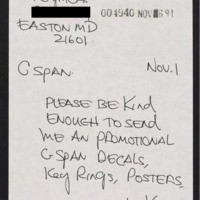 004940 NOV 691
EASTON MD
21601
CSPAN.
NOV. 1
PLEASE BE KIND
ENOUGH TO SEND
ME AN PROMOTIONAL
C-SPAN DECALS,
KEY RINGS, POSTERS,